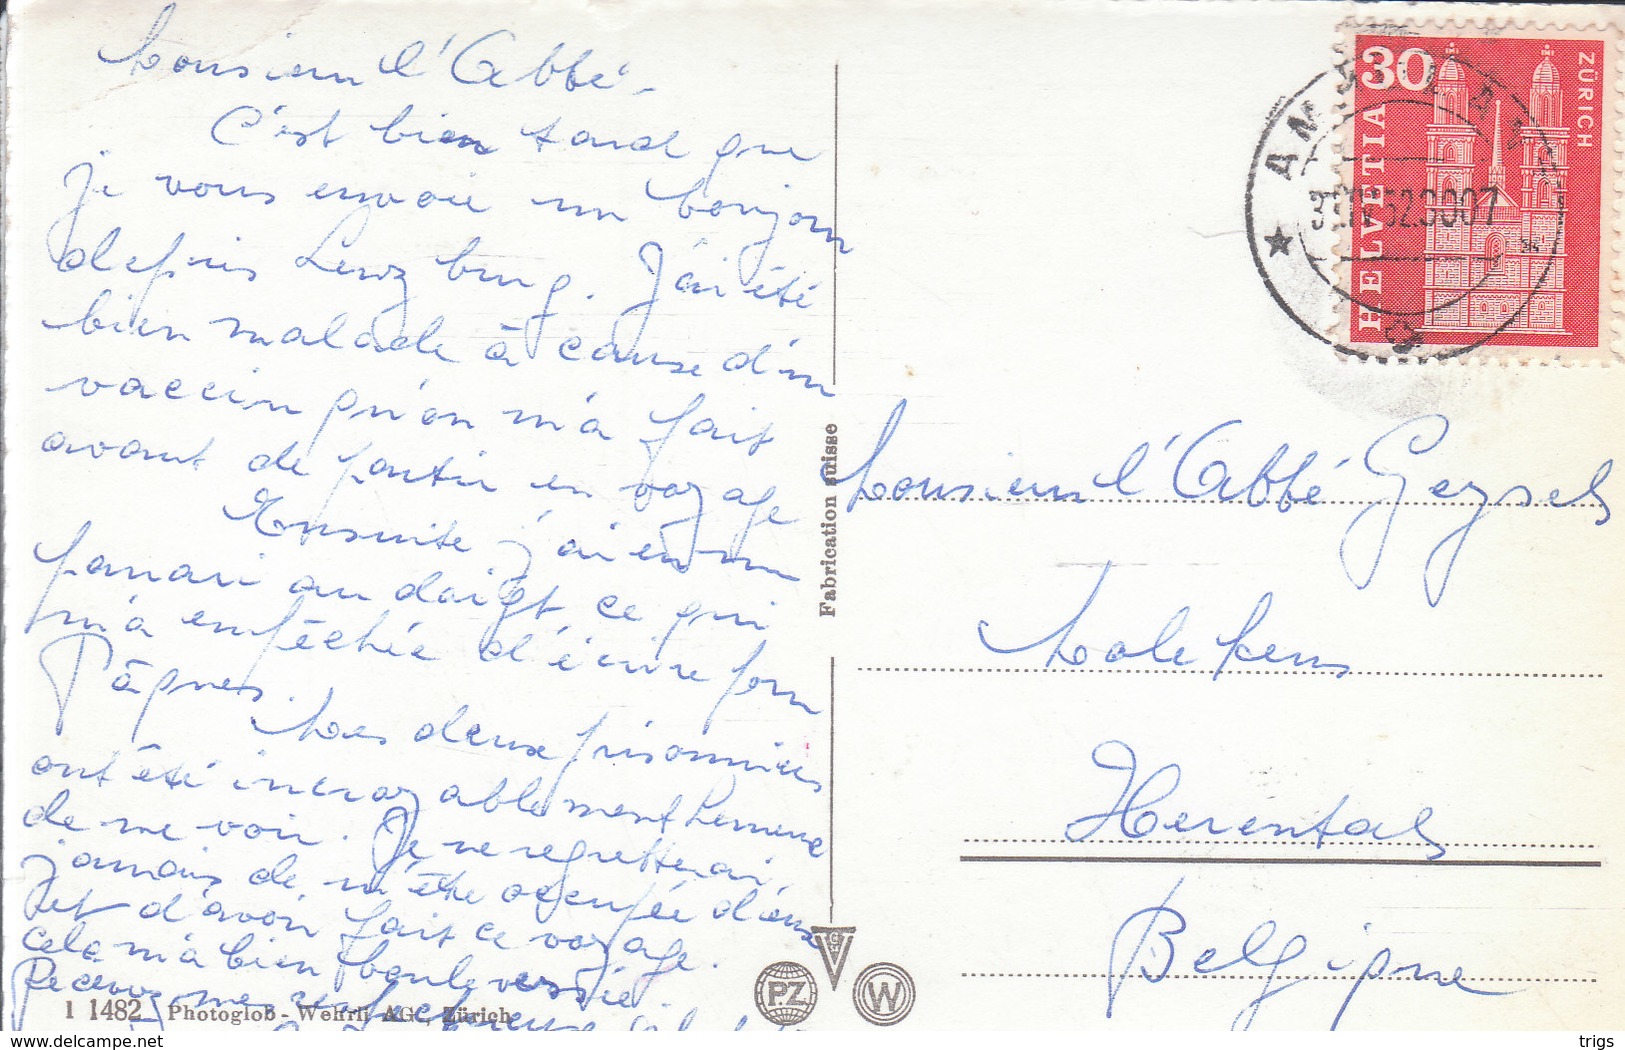 Monsieur l'Abbé.
C'est bien tard que
je vous envoie un bonjour
depuis Lenzburg. J'ai été
bien malade à cause d'un
vaccin qu'on m'a fait
avant de partir en voyage
Ensuite j'ai eu un
panari au doigt ce qui
m'a empêchée d'écrire pour
Pâques.
Les deux prisonniers
ont été incroyablement heureux
de me voir. Je ne regretterai
jamais de m'être occupée d'eux
et d'avoir fait ce voyage.
cela m'a bien bouleversée.
Recevez mes
1 1482 Photoglob - Wehrli AG., Zürich
Fabrication suisse
PZ
W
30
ZÜRICH
HELVETIA
Monsieur l'Abbé Geysels
Molekens
Herentals
Belgique
delcampe.net
trigs